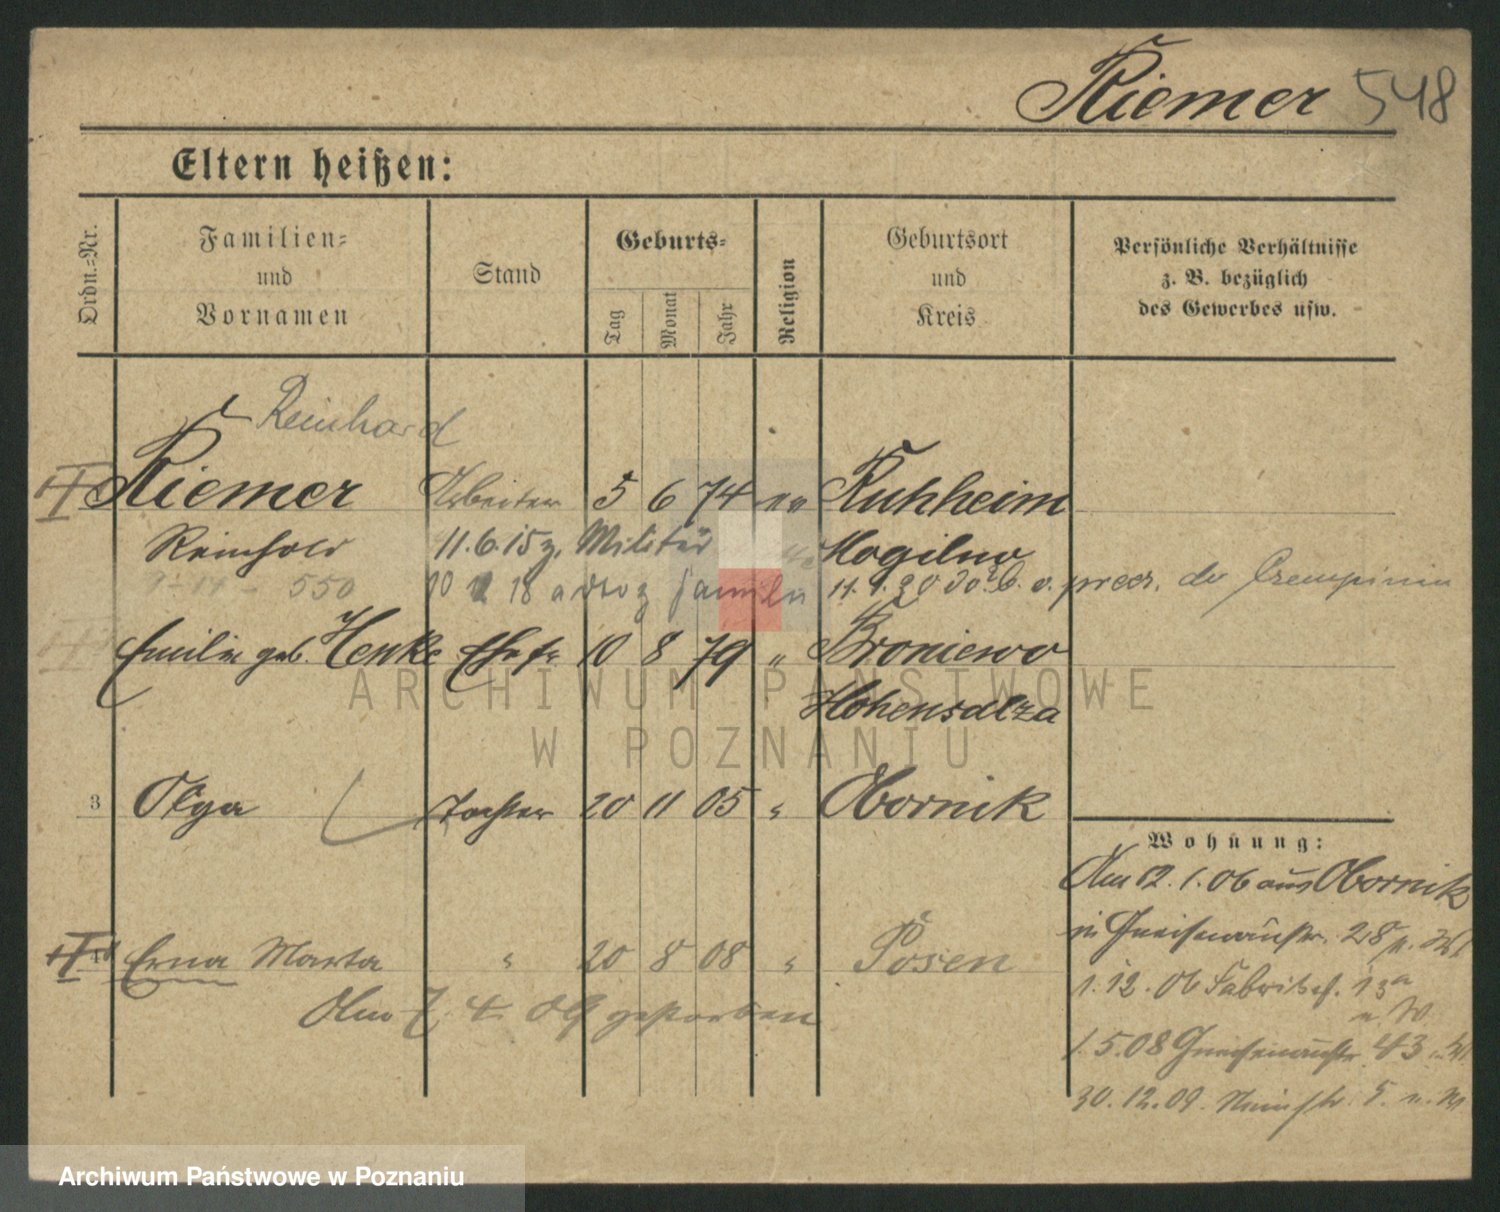 Riemer 548
Eltern heißen:
Ordn.-Nr.
Familien-
und
Vornamen
Stand
Geburts-
Tag
Monat
Jahr
Religion
Geburtsort
und
Kreis
Persönliche Verhältnisse
z. B. bezüglich
des Gewerbes usw.
Reinhard
Riemer Arbeiter 5 6 74 Kuhheim
Reinhold 11.6.15 z. Militär Mogilno
550 10 18 Familie 11.9.20
Emilie geb. Henke Ehefr 10 8 79 " Broniewo
Hohensalza
3 Olga Tochter 20 11 05 " Obornik
Wohnung:
Am 12.1.06 aus Obornik
in Gneisenaustr. 28
4 Erna Marta " 20 8 08 " Posen
1.12.06 Fabrikstr. 13a
Am 7. 4. 09 gestorben
1.5.08 Gneisenaustr. 43
30.12.09 5.
ARCHIWUM PAŃSTWOWE
W POZNANIU
Archiwum Państwowe w Poznaniu